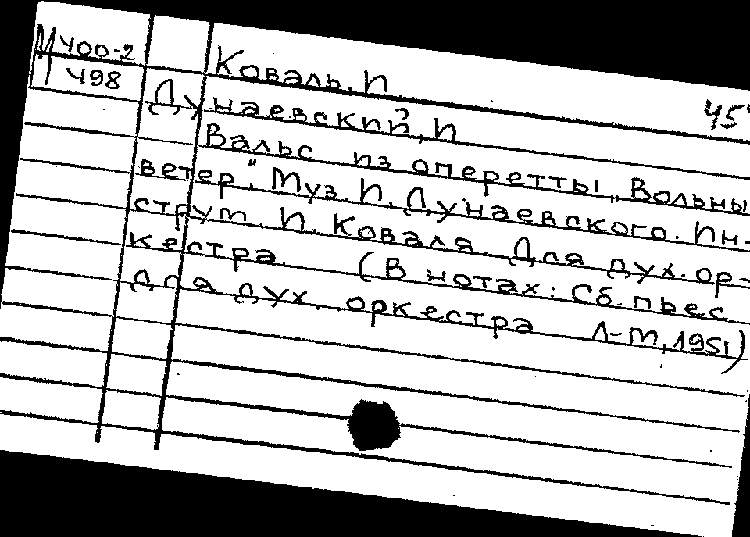 М 400-2
498
Коваль, И.
45
Дунаевский, И
Вальс из оперетты „Вольны
ветер". Муз. И. Дунаевского. Ин-
струм. И. Коваля. Для дух. ор-
кестра. (В нотах: Сб. пьес
для дух. оркестра Л-М, 1951)